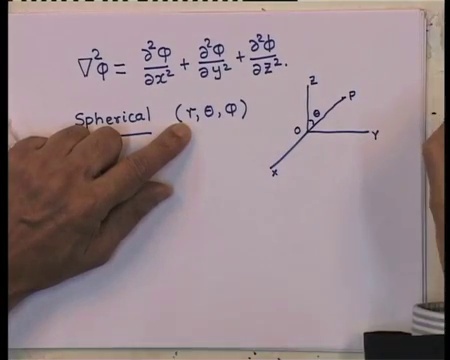 ∇²φ = ∂²φ/∂x² + ∂²φ/∂y² + ∂²φ/∂z².
Spherical (r, θ, φ)
Z
P
θ
O
Y
X